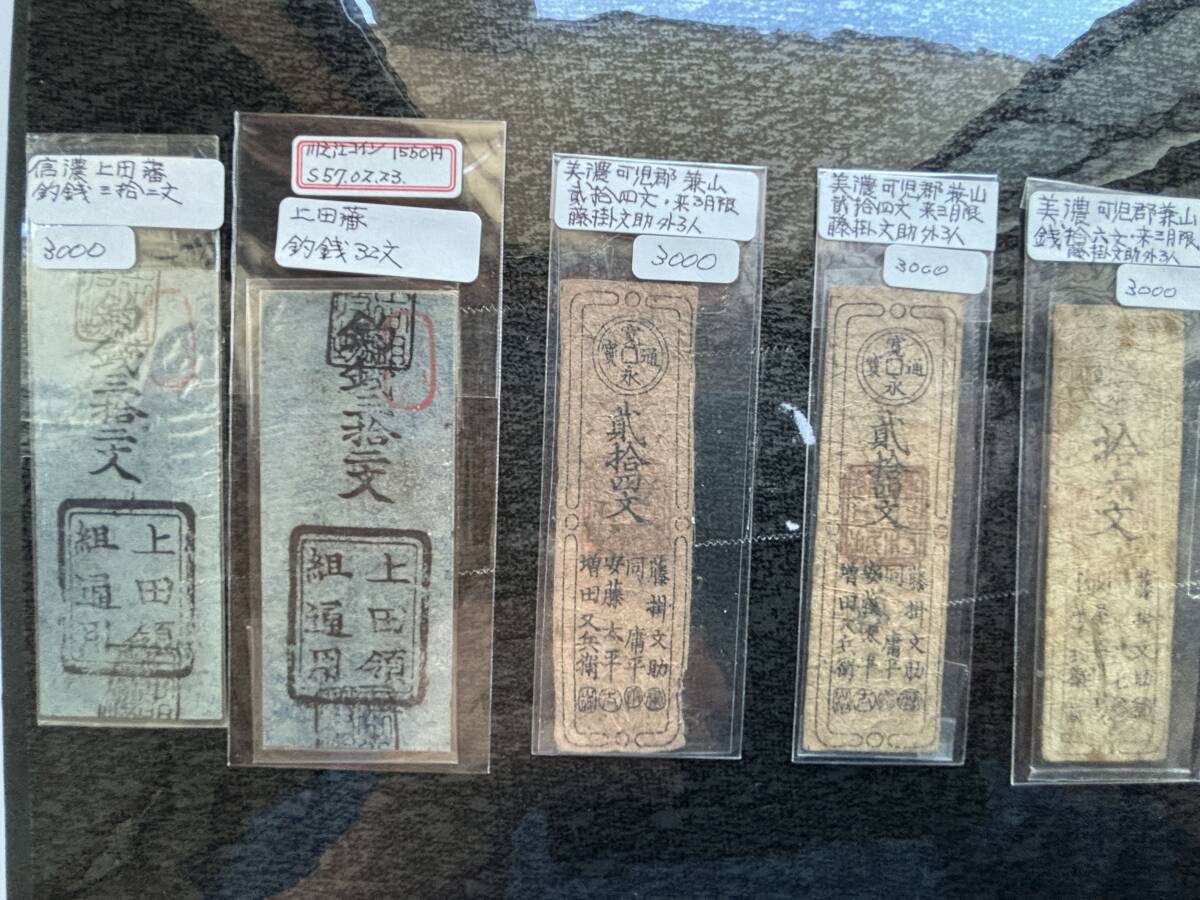 信濃上田藩
釣銭三拾二文
3000
銭三拾二文
上田領
組通用
川之江コイン 1550円
S57.02.23.
上田藩
釣銭32文
銭三拾二文
上田領
組通用
美濃可児郡兼山
貳拾四文・来三月限
藤掛文助外3人
3000
寛永通寳
貳拾四文
藤掛文助
同庸平
安藤太平
増田又兵衛
美濃可児郡兼山
貳拾四文 来三月限
藤掛文助外3人
3000
寛永通寳
貳拾四文
藤掛文助
同庸平
増田又兵衛
美濃可児郡兼山
銭拾六文・来三月限
藤掛文助外3人
3000
拾六文
藤掛文助